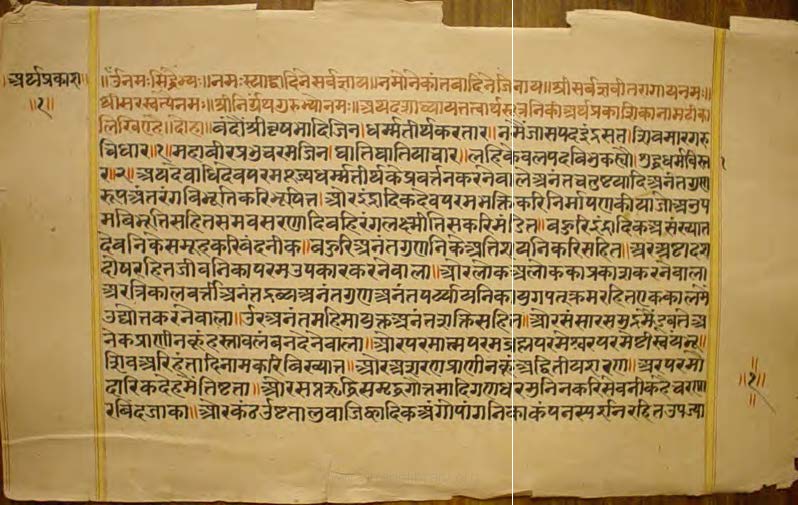 अर्थप्रकाश
॥१॥
॥ॐनमःसिद्धेभ्यः॥नमःस्याद्वादिनेसर्वज्ञाय॥नमोनेकांतवादिनेजिनाय॥श्रीसर्वज्ञवीतरागायनमः॥
श्रीसरस्वत्यैनमः॥श्रीनिर्ग्रंथगुरुभ्योनमः॥अथदशाध्यायतत्वार्थसूत्रनिकीअर्थप्रकाशिकानामटीका
लिखिएहै॥दोहा॥वंदौंश्रीवृषभादिजिन॥धर्म्मतीर्थकरतार॥नमैंजासपदइंद्रसत॥शिवमारगरु
चिधार॥१॥महावीरप्रभुचरमजिन॥घातिघातियाचार॥लहिकेवलपद
र॥२॥अथदेवाधिदेवपरमपूज्यधर्म्मतीर्थकेप्रवर्त्तनकरनेवालेअनंतचतुष्टयादिअनंतगुण
रूपअंतरंगविभूतिकरिभूषित॥औरइंद्रादिकदेवपरमभक्तिकरिनिर्मापणकीयोजोअनुप
मविभूतिसहितसमवसरणादिबहिरंगलक्ष्मीतिसकरिमंडित॥बहुरिइंद्रादिकअसंख्यात
देवनिकेसमूहकरिवंदनीक॥बहुरिअनंतगुणनिकेअतिशयनिकरिसहित॥अरअष्टादश
दोषरहितजीवनिकापरमउपकारकरनेवाला॥औरलोकअलोककाप्रकाशकरनेवाला
अरत्रिकालवर्त्तीअनंतद्रव्यअनंतगुणअनंतपर्य्यायनिकायुगपतक्रमरहितएककालमैं
उद्योतकरनेवाला॥औरअनंतमहिमायुक्तअनंतशक्तिसहित॥औरसंसारसमुद्रमैंडूबतेअ
नेकप्राणीनकूंहस्तावलंबनदेनेवाला॥औरपरमात्मपरमब्रह्मपरमेश्वरपरमेष्टीस्वयंभू
शिवअरिहंतादिनामकरिविख्यात॥औरअशरणप्राणीनकूंअद्वितीयशरण॥अरपरमौ
दारिकदेहमैंतिष्टता॥औरसप्तऋद्धिसमृद्धगोत्तमादिगणधरमुनिनकरिसेवनीकहैचरणा
रविंदजाका॥औरकंठउष्टतालुवाजिह्वादिकअंगोपांगनिकाकंपनस्पर्शनरहितउपज्या
॥१॥